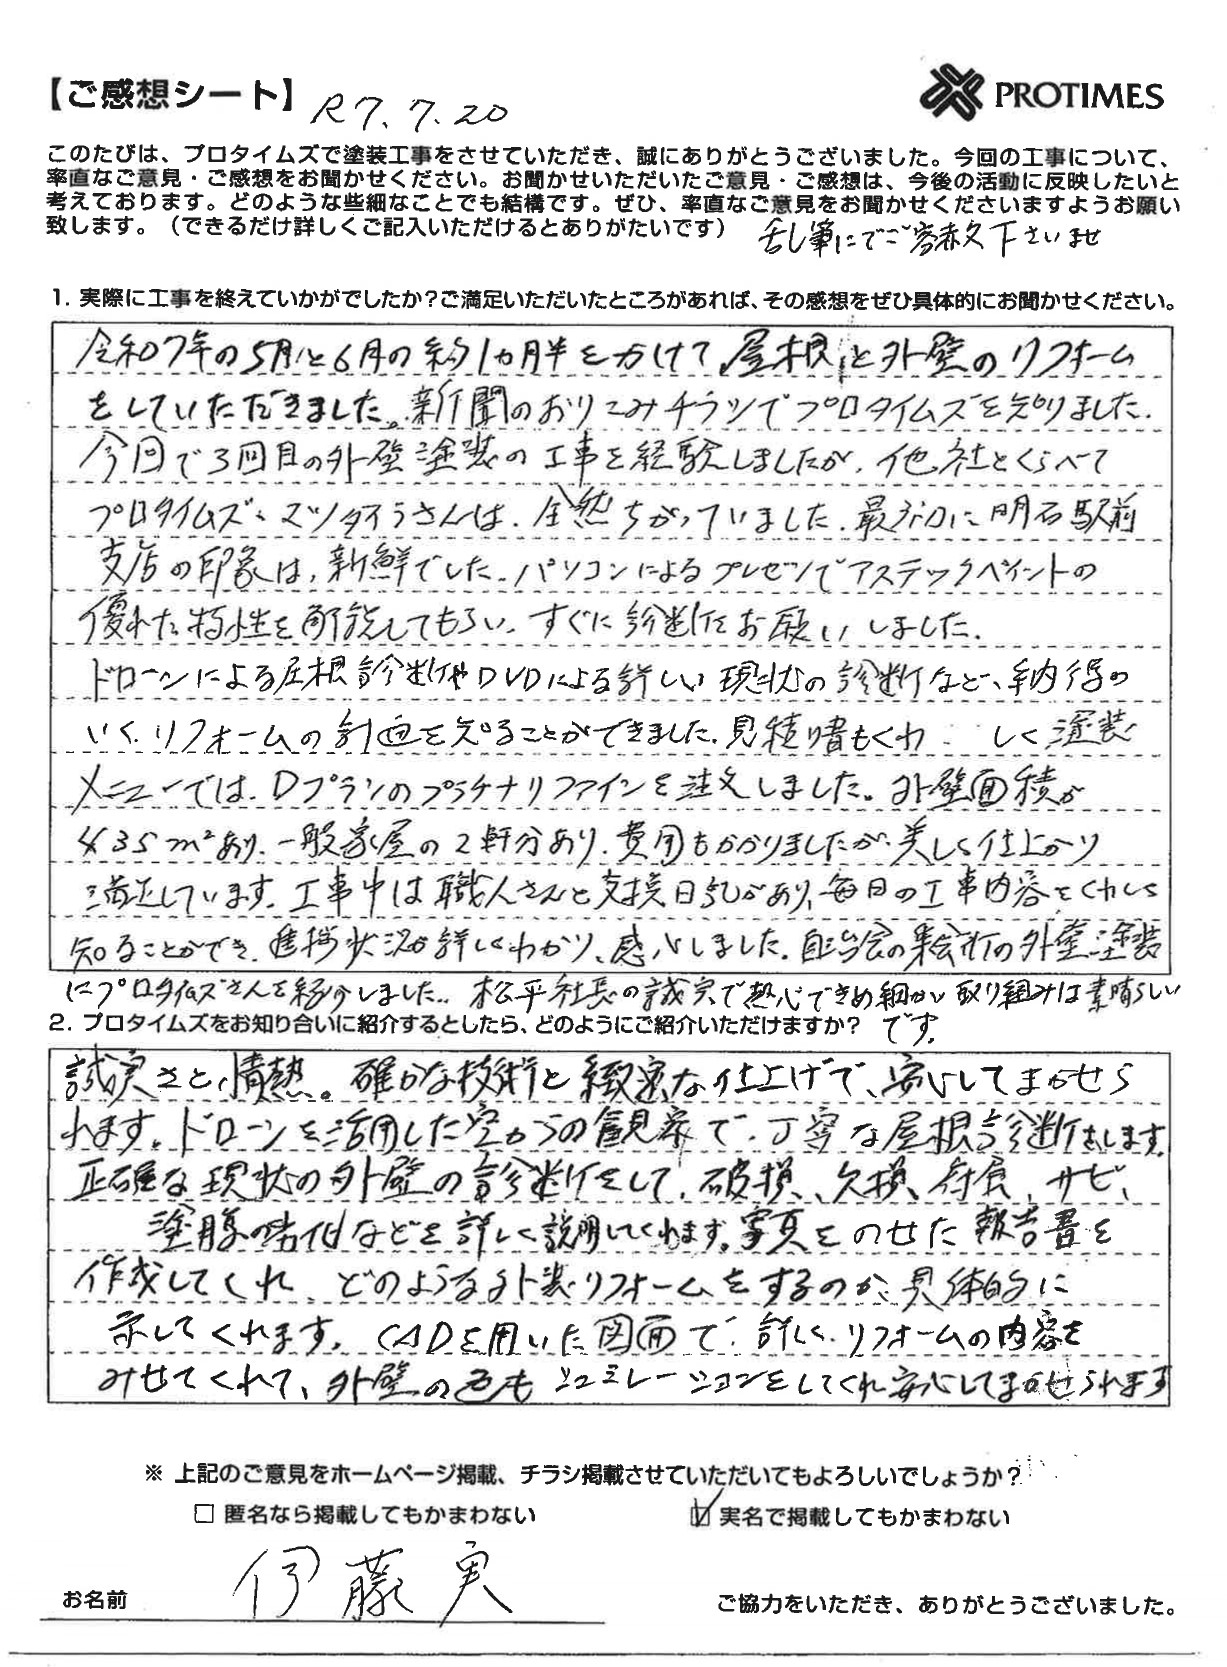 【ご感想シート】 R7.7.20
PROTIMES
このたびは、プロタイムズで塗装工事をさせていただき、誠にありがとうございました。今回の工事について、
率直なご意見・ご感想をお聞かせください。お聞かせいただいたご意見・ご感想は、今後の活動に反映したいと
考えております。どのような些細なことでも結構です。ぜひ、率直なご意見をお聞かせくださいますようお願い
致します。（できるだけ詳しくご記入いただけるとありがたいです） 乱筆にてご容赦下さいませ
1. 実際に工事を終えていかがでしたか？ご満足いただいたところがあれば、その感想をぜひ具体的にお聞かせください。
令和7年の5月と6月の約1ヵ月半をかけて、屋根と外壁のリフォーム
をしていただきました。新聞のおりこみチラシでプロタイムズを知りました。
今回で3回目の外壁塗装の工事を経験しましたが、他社とくらべて
プロタイムズ・マツダイラさんは、全然ちがっていました。最初に明石駅前
支店の印象は、新鮮でした。パソコンによるプレゼンでアステックペイントの
優れた特性を解説してもらい、すぐに診断をお願いしました。
ドローンによる屋根診断やDVDによる詳しい現状の診断など、納得の
いくリフォームの計画を知ることができました。見積り書もくわしく塗装
メニューでは、Dプランのプラチナリファインを注文しました。外壁面積が
435m²あり、一般家屋の2軒分あり、費用もかかりましたが、美しく仕上がり
満足しています。工事中は職人さんと交換日記があり、毎日の工事内容をくわしく
知ることができ、進捗状況が詳しくわかり、感心しました。自治会の集会所の外壁塗装
にプロタイムズさんを紹介しました。松平社長の誠実で熱心できめ細かい取り組みは素晴らしい
です。
2. プロタイムズをお知り合いに紹介するとしたら、どのようにご紹介いただけますか？
誠実さと、情熱。確かな技術と緻密な仕上げで、安心してまかせら
れます。ドローンを活用した空からの観察で、丁寧な屋根診断をします。
正確な現状の外壁の診断をして、破損、欠損、腐食、サビ、
塗膜の劣化などを詳しく説明してくれます。写真をのせた報告書を
作成してくれ、どのような外装リフォームをするのか、具体的に
示してくれます。CADを用いた図面で、詳しくリフォームの内容を
みせてくれて、外壁の色もシュミレーションをしてくれ安心してまかせられます
※ 上記のご意見をホームページ掲載、チラシ掲載させていただいてもよろしいでしょうか？
□ 匿名なら掲載してもかまわない ☑ 実名で掲載してもかまわない
お名前 伊藤実
ご協力をいただき、ありがとうございました。